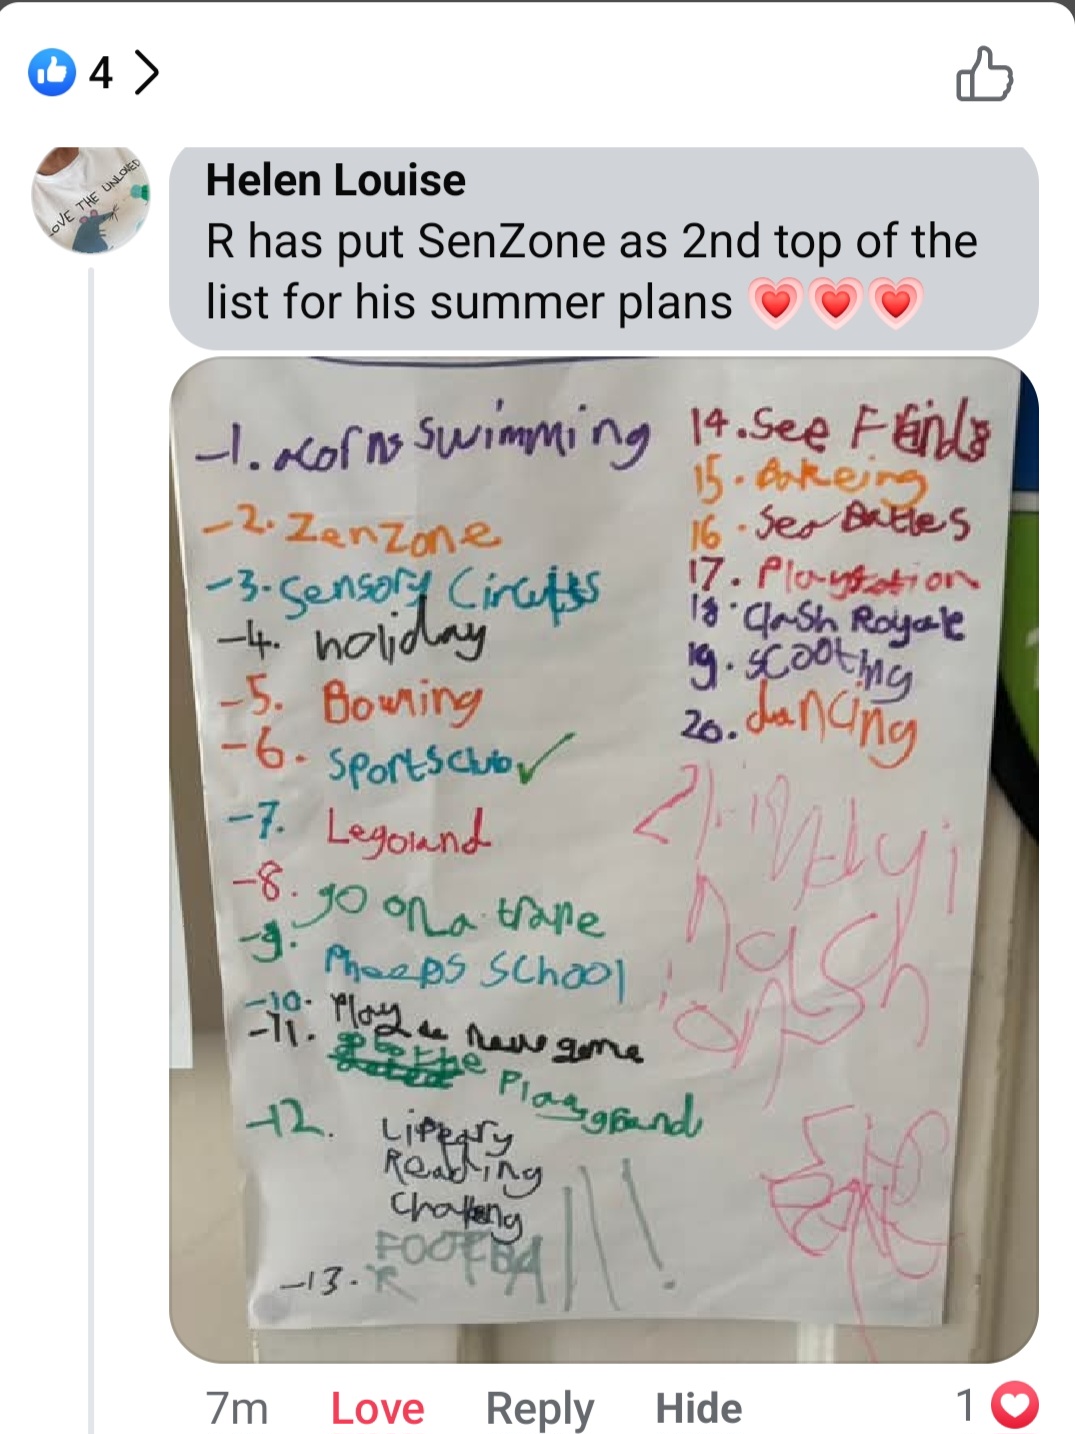 4
LOVE THE UNLOVED
Helen Louise
R has put SenZone as 2nd top of the
list for his summer plans
-1. acorns swimming
-2. Zenzone
-3. Sensory Circuits
-4. holiday
-5. Bowling
-6. Sportsclub ✓
-7. Legoland
-8. go on a trane
-9. Pheeps SChool
-10. Play a new game
-11. to the Playground
-12. Liperry
Reading
Challeng
-13. FOOTBAll!
14. See Friends
15. Bakeing
16. Sea Battles
17. Playstation
18. Clash Royale
19. scooting
20. dancing
21.
7m Love Reply Hide 1